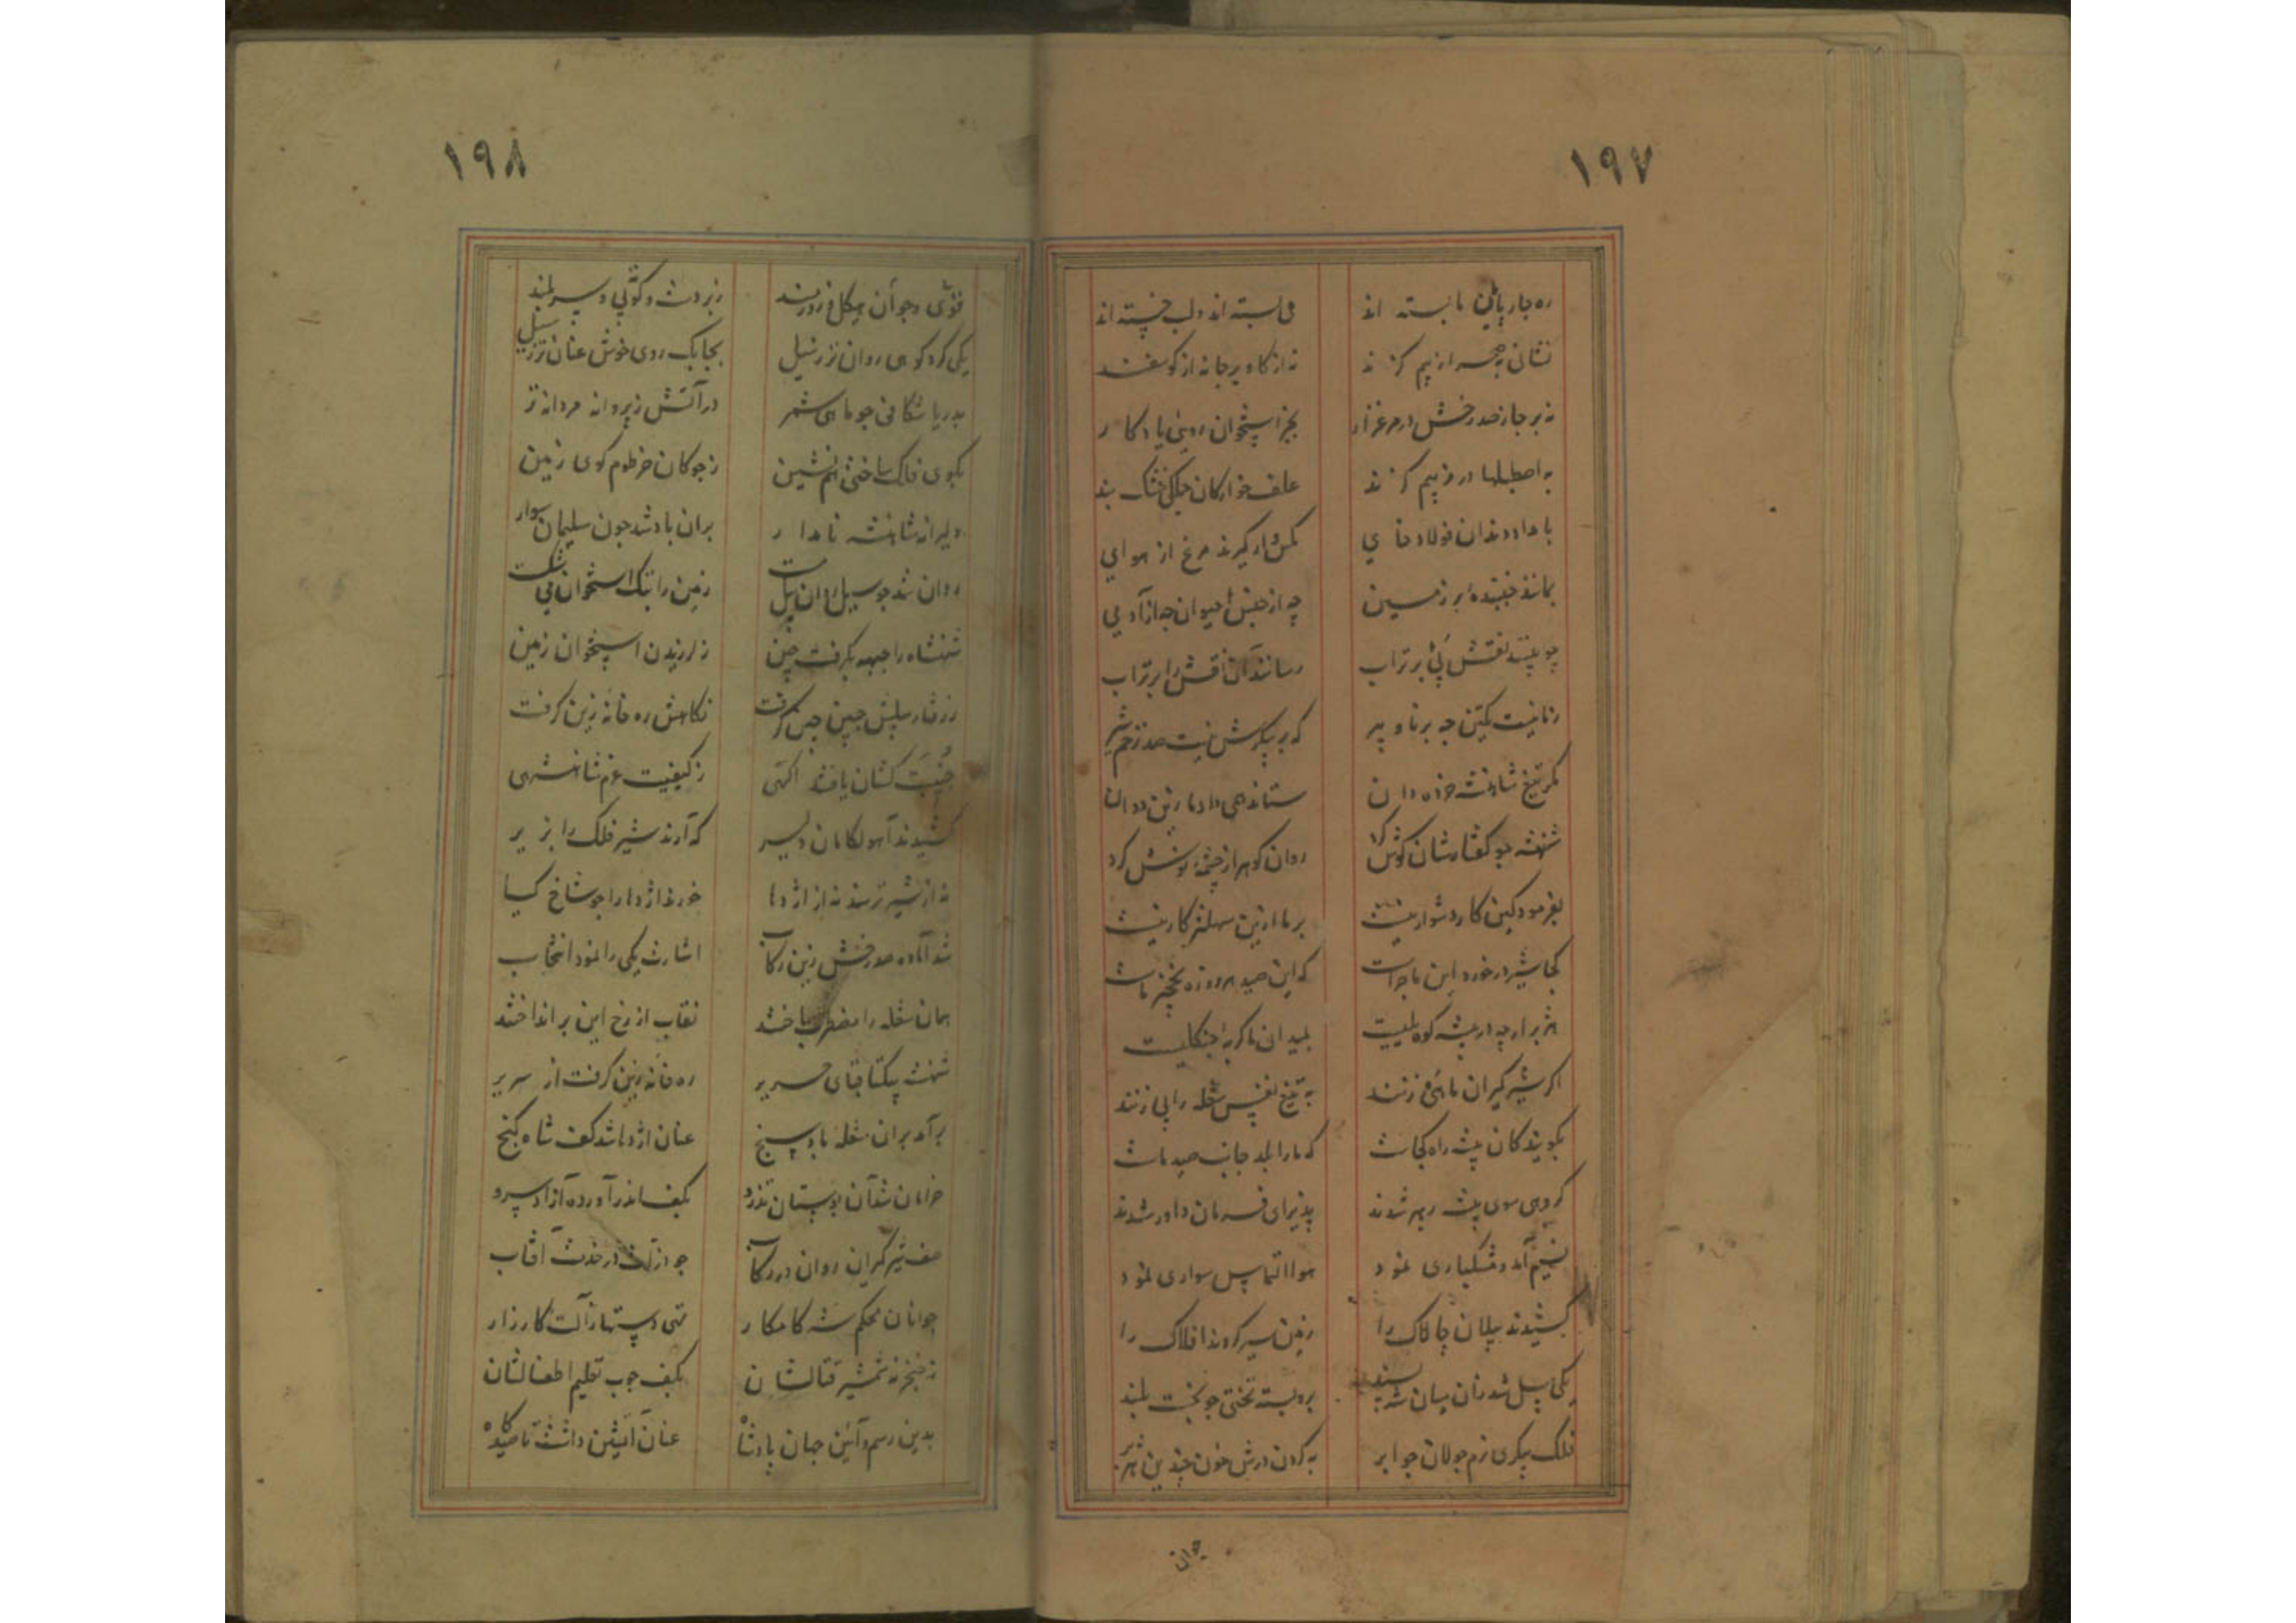 ١٩٧
ره چارپائین ما بسته اند می بسته اند و لب خسته اند
نشانی به صحرا از بیم گزند نه از گاو بر جا نه از گوسفند
نه بر جا ز صد رخش در مرغزار بجز استخوان روینی یادکار
به اصطبلها در ز بیم گزند علف خوارکان خشک بند
بامداد دندان فولادخای مکس وار گیرند مرغ از هوای
بمانند جنبنده بر زمین چه از جنس حیوان چه از آدمی
چو بینند نقش پی بر تراب رسانند آن نقش را بر تراب
زمانیست یکتن چه برنا و پیر که بر پیکرش نیست صد زخم شیر
مکر تیغ شاهنشه خرده دان ستاند همی داد ما زین ددان
شهنشه چو گفتارشان گوش کرد روان گوهر از چشمه نوش کرد
بفرمود کین کار دشوار نیست بر ما ازین سهلتر کار نیست
کجا شیر در خورد این ماجراست که این صید هر روزه نخچیر ماست
هژبر ارچه در بیشه کوه بلیست بمیدان ما گربه جنگلیست
اگر شیرگیران ما هی زنند به تیغ نفس شعله را پی زنند
بگویند کان بیشه راه کجاست که ما را بلد جانب صید ماست
گروهی سوی بیشه رهبر شدند پذیرای فرمان داور شدند
نسیم آمد و مشکباری نمود هوا التماس سواری نمود
کشیدند پیلان چالاک را زمین سیر کردند افلاک را
یکی پیل شد زان میان شه پسند برو بسته تختی چو بخت بلند
فلک پیکری نرم جولان چو ابر به گردن درش خون چندین هژبر
جوان
١٩٨
قوی و جوان هیکل و زورمند زبردست و کوپی و سربلند
یکی گرد کوهی روان تر ز نیل بچابک روی خوش عنان تر ز سیل
بدریا شکافی چو ماهی شمر در آتش ز پروانه مردانه تر
بگوی فلک ساختی هم نشین ز چوگان خرطوم گوی زمین
دلیرانه شاهنشه نامدار بران باد شد چون سلیمان سوار
روان شد چو سیل روان پیل مست زمین را بتک استخوان می شکست
شهنشاه را جبهه بگرفت چین ز لرزیدن استخوان زمین
ز رفتار پیلش جبین چین گرفت نگاهش ره خانه زین گرفت
جنیبت کشان یافتند آگهی ز کیفیت عزم شاهنشهی
کشیدند آهو لکامان دلیر که آرند شیر فلک را بزیر
نه از شیر ترسند نه از اژدها خورند اژدها را چو شاخ گیا
شد آماده صد رخش زین رکاب اشارت یکی را نمود انتخاب
همان شعله را مضطرب ساختند نقاب از رخ این بر انداختند
شهنشه یکتا قبای حریر ره خانه زین گرفت از سریر
برآمد بران شعله باد سنج عنان اژدها شد کف شاه گنج
خرامان شد آن بوستان تذرو بکف اندر آورده آزاد سرو
صف شیرگیران روان در رکاب چو ذرات در خدمت آفتاب
جوانان محکم شه کامکار تهی دستها ز آلت کارزار
نه خنجر نه شمشیر قتالشان بکف چوب تعلیم اطفالشان
بدین رسم و آئین جهان پادشاه عنان آتشین داشت تا صیدگاه